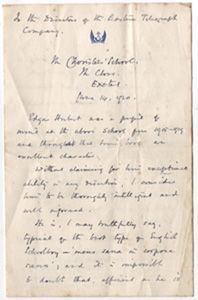 To the Directors of the Eastern Telegraph
Company.
The Choristers' School.
The Close.
Exeter
June 14, 1920.
Edgar Hulbert was a pupil of
mine at the above School from 1915-1919
and throughout that time bore an
excellent character.
Without claiming for him exceptional
ability in any direction, I consider
him to be thoroughly intelligent and
well informed.
He is, I may truthfully say,
typical of the best type of English
Schoolboy - mens sana in corpore
sano; and it is impossible
to doubt that, efficient as he is